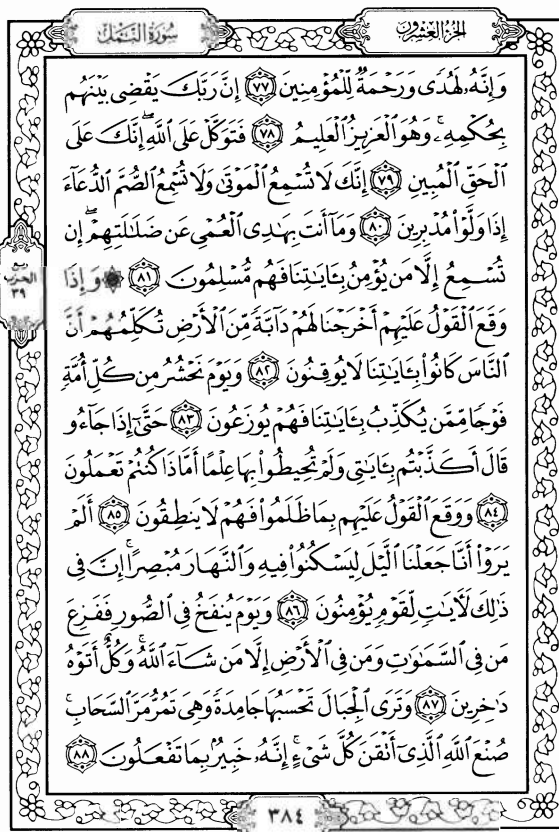 الجزء العشرون
سورة النمل
وَإِنَّهُۥ لَهُدًى وَرَحْمَةٌ لِّلْمُؤْمِنِينَ ٧٧ إِنَّ رَبَّكَ يَقْضِى بَيْنَهُم
بِحُكْمِهِۦۚ وَهُوَ ٱلْعَزِيزُ ٱلْعَلِيمُ ٧٨ فَتَوَكَّلْ عَلَى ٱللَّهِۖ إِنَّكَ عَلَى
ٱلْحَقِّ ٱلْمُبِينِ ٧٩ إِنَّكَ لَا تُسْمِعُ ٱلْمَوْتَىٰ وَلَا تُسْمِعُ ٱلصُّمَّ ٱلدُّعَآءَ
إِذَا وَلَّوْا۟ مُدْبِرِينَ ٨٠ وَمَآ أَنتَ بِهَٰدِى ٱلْعُمْىِ عَن ضَلَٰلَتِهِمْۖ إِن
تُسْمِعُ إِلَّا مَن يُؤْمِنُ بِـَٔايَٰتِنَا فَهُم مُّسْلِمُونَ ٨١ ۞ وَإِذَا
وَقَعَ ٱلْقَوْلُ عَلَيْهِمْ أَخْرَجْنَا لَهُمْ دَآبَّةً مِّنَ ٱلْأَرْضِ تُكَلِّمُهُمْ أَنَّ
ٱلنَّاسَ كَانُوا۟ بِـَٔايَٰتِنَا لَا يُوقِنُونَ ٨٢ وَيَوْمَ نَحْشُرُ مِن كُلِّ أُمَّةٍ
فَوْجًا مِّمَّن يُكَذِّبُ بِـَٔايَٰتِنَا فَهُمْ يُوزَعُونَ ٨٣ حَتَّىٰٓ إِذَا جَآءُو
قَالَ أَكَذَّبْتُم بِـَٔايَٰتِى وَلَمْ تُحِيطُوا۟ بِهَا عِلْمًا أَمَّاذَا كُنتُمْ تَعْمَلُونَ
٨٤ وَوَقَعَ ٱلْقَوْلُ عَلَيْهِم بِمَا ظَلَمُوا۟ فَهُمْ لَا يَنطِقُونَ ٨٥ أَلَمْ
يَرَوْا۟ أَنَّا جَعَلْنَا ٱلَّيْلَ لِيَسْكُنُوا۟ فِيهِ وَٱلنَّهَارَ مُبْصِرًاۚ إِنَّ فِى
ذَٰلِكَ لَءَايَٰتٍ لِّقَوْمٍ يُؤْمِنُونَ ٨٦ وَيَوْمَ يُنفَخُ فِى ٱلصُّورِ فَفَزِعَ
مَن فِى ٱلسَّمَٰوَٰتِ وَمَن فِى ٱلْأَرْضِ إِلَّا مَن شَآءَ ٱللَّهُۚ وَكُلٌّ أَتَوْهُ
دَٰخِرِينَ ٨٧ وَتَرَى ٱلْجِبَالَ تَحْسَبُهَا جَامِدَةً وَهِىَ تَمُرُّ مَرَّ ٱلسَّحَابِۚ
صُنْعَ ٱللَّهِ ٱلَّذِىٓ أَتْقَنَ كُلَّ شَىْءٍۚ إِنَّهُۥ خَبِيرٌۢ بِمَا تَفْعَلُونَ ٨٨
ربع
الحزب
٣٩
٣٨٤